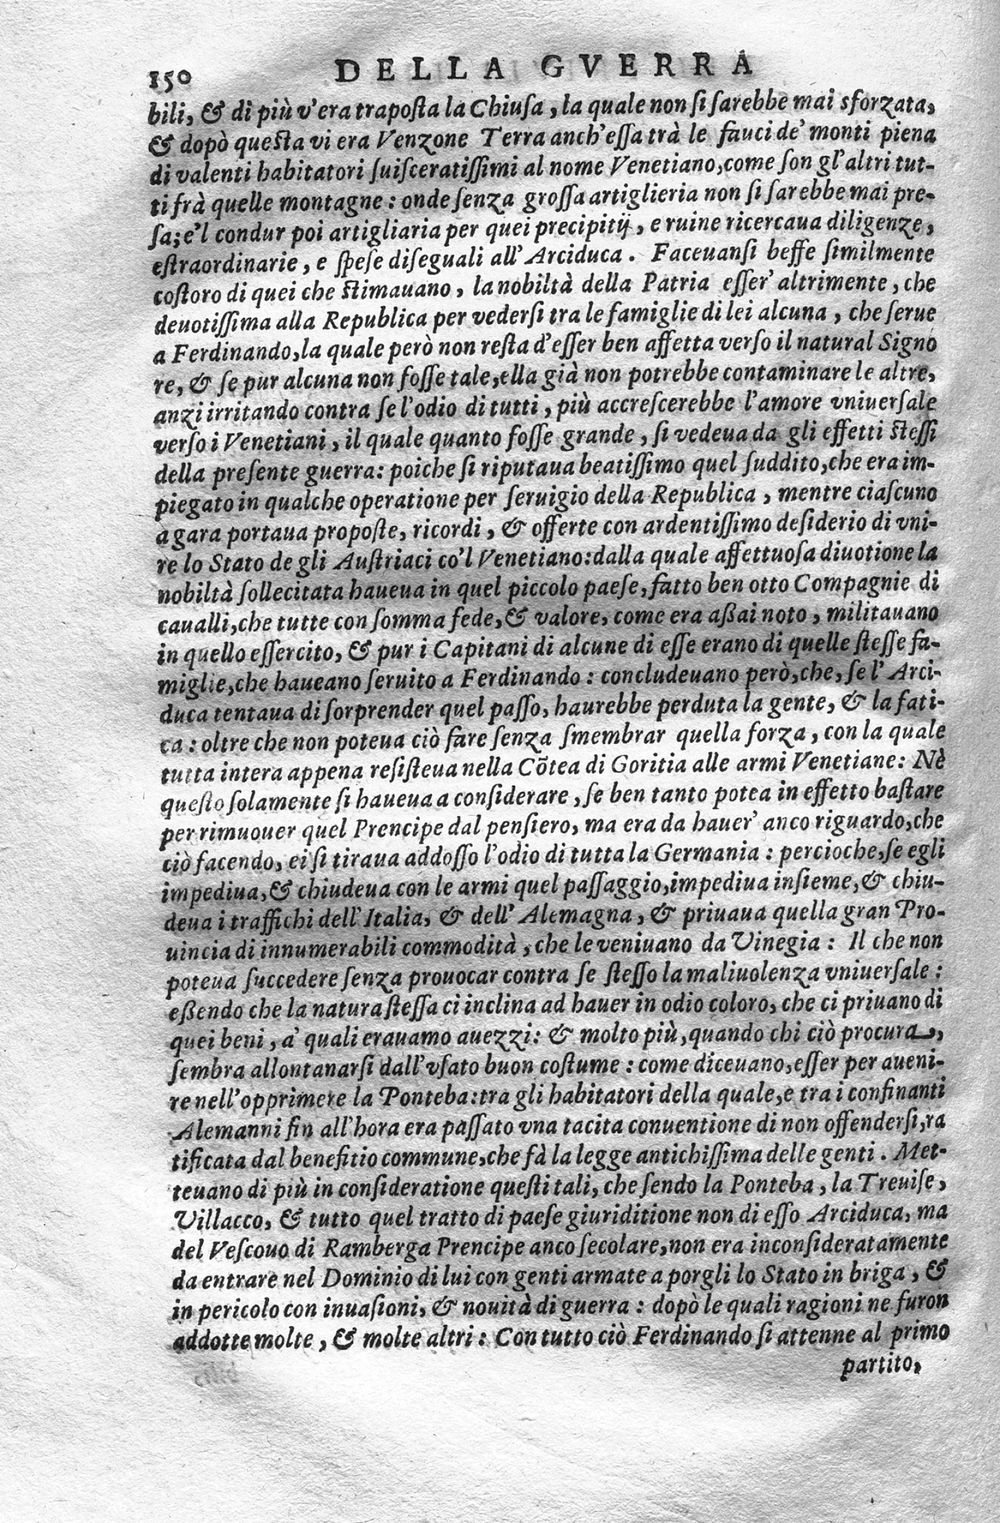 150 DELLA GVERRA
bili, & di più v'era traposta la Chiusa, la quale non si sarebbe mai sforzata,
& dopò questa vi era Venzone Terra anch'essa trà le fauci de' monti piena
di valenti habitatori suisceratissimi al nome Venetiano, come son gl'altri tut-
ti frà quelle montagne: onde senza grossa artiglieria non si sarebbe mai pre-
sa; e'l condur poi artigliaria per quei precipitij, e ruine ricercaua diligenze,
estraordinarie, e spese diseguali all'Arciduca. Faceuansi beffe similmente
costoro di quei che stimauano, la nobiltà della Patria esser' altrimente, che
deuotissima alla Republica per vedersi tra le famiglie di lei alcuna, che serue
a Ferdinando, la quale però non resta d'esser ben affetta verso il natural Signo
re, & se pur alcuna non fosse tale, ella già non potrebbe contaminare le altre,
anzi irritando contra se l'odio di tutti, più accrescerebbe l'amore vniuersale
verso i Venetiani, il quale quanto fosse grande, si vedeua da gli effetti stessi
della presente guerra: poiche si riputaua beatissimo quel suddito, che era im-
piegato in qualche operatione per seruigio della Republica, mentre ciascuno
a gara portaua proposte, ricordi, & offerte con ardentissimo desiderio di vni-
re lo Stato de gli Austriaci co'l Venetiano: dalla quale affettuosa diuotione la
nobiltà sollecitata haueua in quel piccolo paese, fatto ben otto Compagnie di
caualli, che tutte con somma fede, & valore, come era aßai noto, militauano
in quello essercito, & pur i Capitani di alcune di esse erano di quelle stesse fa-
miglie, che haueano seruito a Ferdinando: concludeuano però, che, se l'Arci-
duca tentaua di sorprender quel passo, haurebbe perduta la gente, & la fati-
ca: oltre che non poteua ciò fare senza smembrar quella forza, con la quale
tutta intera appena resisteua nella Cõtea di Goritia alle armi Venetiane: Nè
questo solamente si haueua a considerare, se ben tanto potea in effetto bastare
per rimuouer quel Prencipe dal pensiero, ma era da hauer' anco riguardo, che
ciò facendo, ei si tiraua addosso l'odio di tutta la Germania: percioche, se egli
impediua, & chiudeua con le armi quel passaggio, impediua insieme, & chiu-
deua i traffichi dell'Italia, & dell'Alemagna, & priuaua quella gran Pro-
uincia di innumerabili commodità, che le veniuano da Vinegia: Il che non
poteua succedere senza prouocar contra se stesso la maliuolenza vniuersale:
eßendo che la natura stessa ci inclina ad hauer in odio coloro, che ci priuano di
quei beni, a' quali erauamo auezzi: & molto più, quando chi ciò procura,
sembra allontanarsi dall'vsato buon costume: come diceuano, esser per aueni-
re nell'opprimere la Ponteba: tra gli habitatori della quale, e tra i confinanti
Alemanni fin all'hora era passato vna tacita conuentione di non offendersi, ra
tificata dal benefitio commune, che fà la legge antichissima delle genti. Met-
teuano di più in consideratione questi tali, che sendo la Ponteba, la Treuise,
Villacco, & tutto quel tratto di paese giuriditione non di esso Arciduca, ma
del Vescouo di Ramberga Prencipe anco secolare, non era inconsideratamente
da entrare nel Dominio di lui con genti armate a porgli lo Stato in briga, &
in pericolo con inuasioni, & nouità di guerra: dopò le quali ragioni ne furon
addotte molte, & molte altri: Con tutto ciò Ferdinando si attenne al primo
partito,